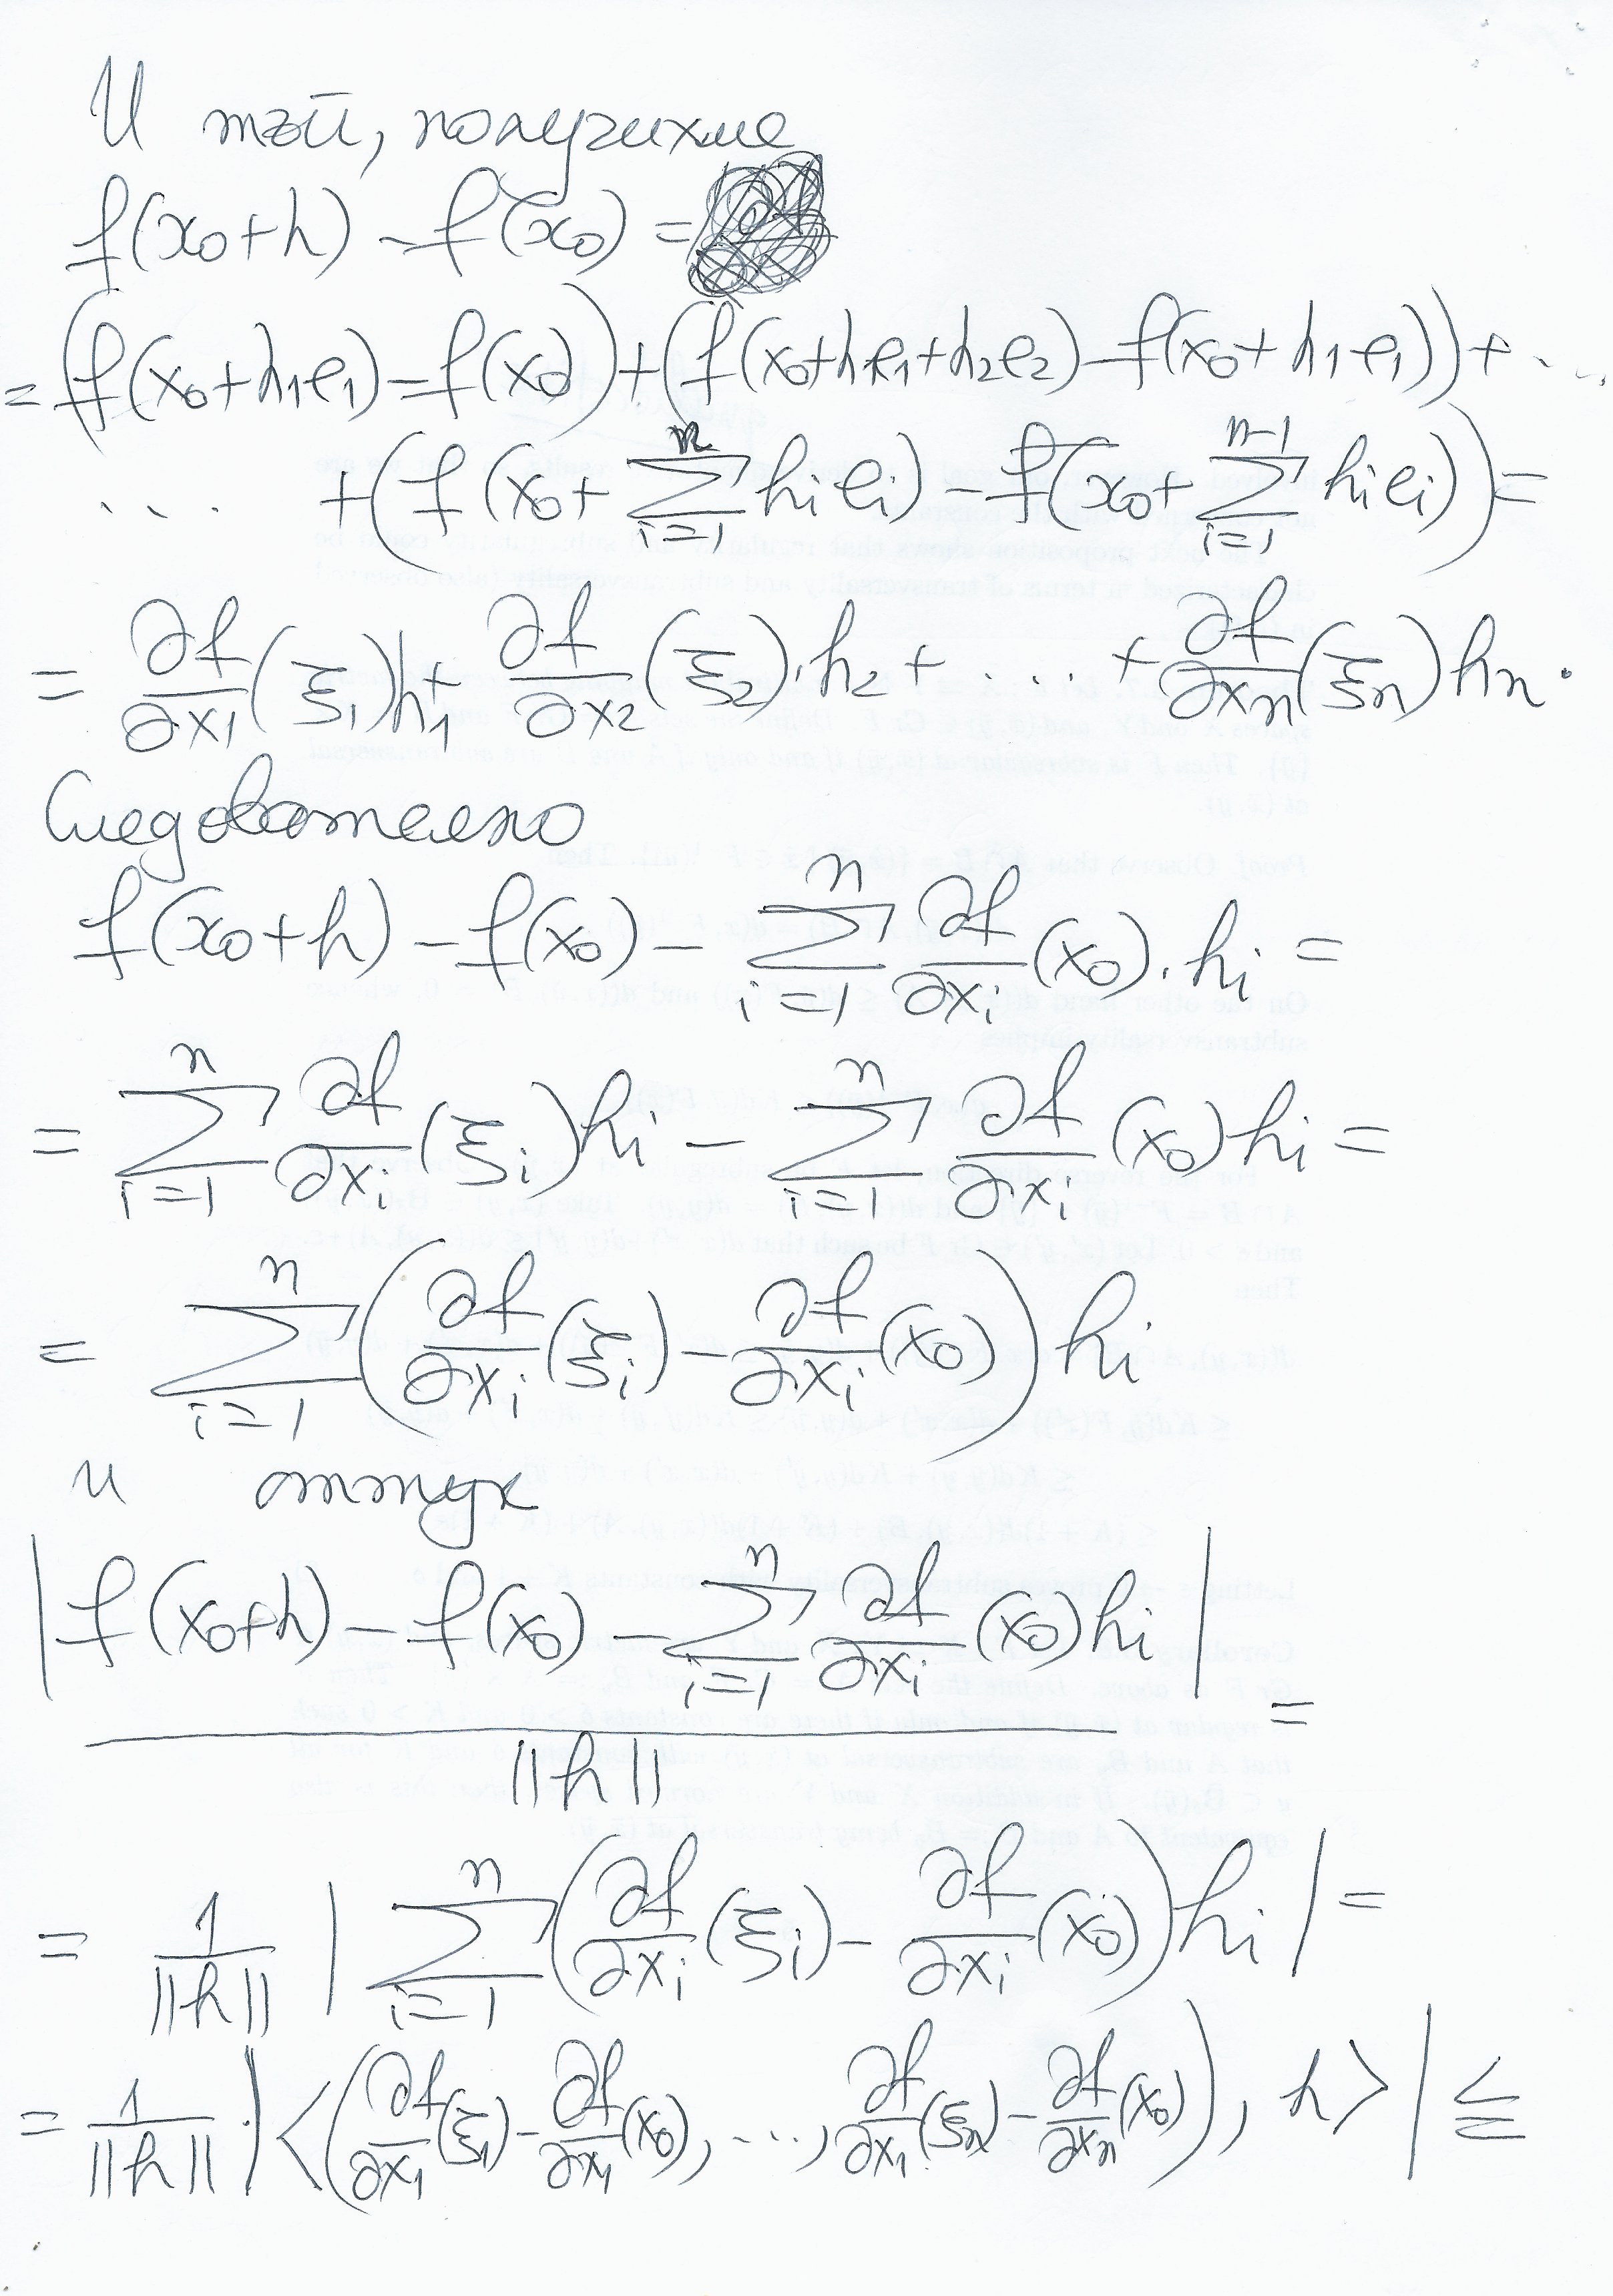 И тъй, получихме
f(x₀+h) - f(x₀) =
= (f(x₀+h₁e₁) - f(x₀)) + (f(x₀+h₁e₁+h₂e₂) - f(x₀+h₁e₁)) + ...
... + (f(x₀+ ∑_{i=1}^{n} hᵢeᵢ) - f(x₀+ ∑_{i=1}^{n-1} hᵢeᵢ)) =
= ∂f/∂x₁ (ξ₁)h₁ + ∂f/∂x₂ (ξ₂).h₂ + ... + ∂f/∂xₙ (ξₙ)hₙ.
Следователно
f(x₀+h) - f(x₀) - ∑_{i=1}^{n} ∂f/∂xᵢ (x₀).hᵢ =
= ∑_{i=1}^{n} ∂f/∂xᵢ (ξᵢ)hᵢ - ∑_{i=1}^{n} ∂f/∂xᵢ (x₀)hᵢ =
= ∑_{i=1}^{n} (∂f/∂xᵢ (ξᵢ) - ∂f/∂xᵢ (x₀)) hᵢ
и оттук
|f(x₀+h) - f(x₀) - ∑_{i=1}^{n} ∂f/∂xᵢ (x₀)hᵢ| / ||h|| =
= 1/||h|| |∑_{i=1}^{n} (∂f/∂xᵢ (ξᵢ) - ∂f/∂xᵢ (x₀)) hᵢ| =
= 1/||h|| .|<(∂f/∂x₁ (ξ₁) - ∂f/∂x₁ (x₀), ..., ∂f/∂x₁ (ξₙ) - ∂f/∂xₙ (x₀)), h>| ≤